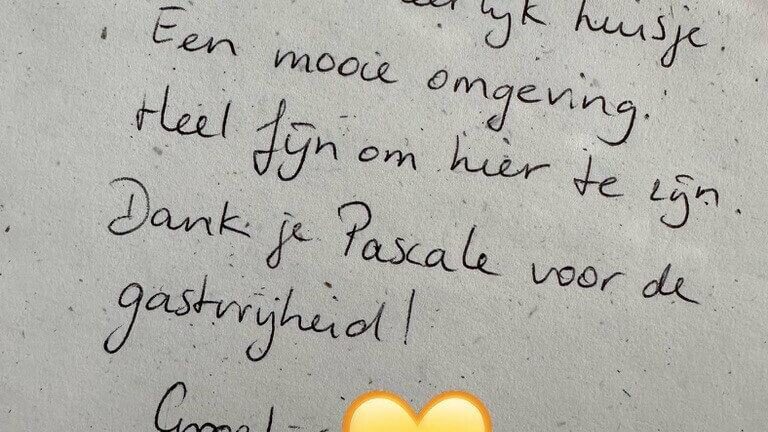 huisje.
Een mooie omgeving.
Heel fijn om hier te zijn.
Dank je Pascale voor de
gastvrijheid!